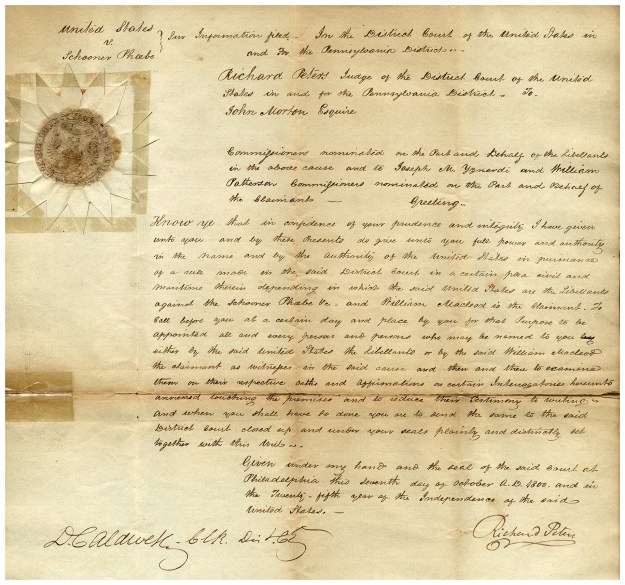 United States
v.
Schooner Phœbe
Sur Information filed. - In the District Court of the United States in
and For the Pennsylvania District..
Richard Peters Judge of the District Court of the United
States in and for the Pennsylvania District. To.
John Morton Esquire
Commissioners nominated on the Part and Behalf of the Libellants
in the above cause and to Joseph M. Yznardi and William
Patterson Commissioners nominated on the Part and Behalf of
the Claimants — Greeting..
Know ye that in confidence of your prudence and integrity I have given
unto you and by these Presents do give unto you full power and authority
in the Name and by the Authority of the United States in pursuance
of a rule made in the said District Court in a certain plea civil and
maritime therein depending in which the said United States are the Libellants
against the Schooner Phœbe &c. and William Macleod is the Claimant. To
Call before you at a certain day and place by you for that Purpose to be
appointed all and every person and persons who may be named to you
either by the said United States the Libellants or by the said William Macleod
the claimant as witnesses in the said cause and then and there to examine
them on their respective oaths and affirmations on certain Interrogatories hereunto
annexed touching the premises and to reduce their testimony to writing -
And when you shall have so done you are to send the same to the said
District Court closed up and under your seals plainly and distinctly set
together with this Writ -.
Given under my hand and the seal of the said Court at
Philadelphia this seventh day of October A.D. 1800. and in
the Twenty-fifth year of the Independence of the said
United States. —
D. Caldwell Clk. Dist. Ct
Richard Peters